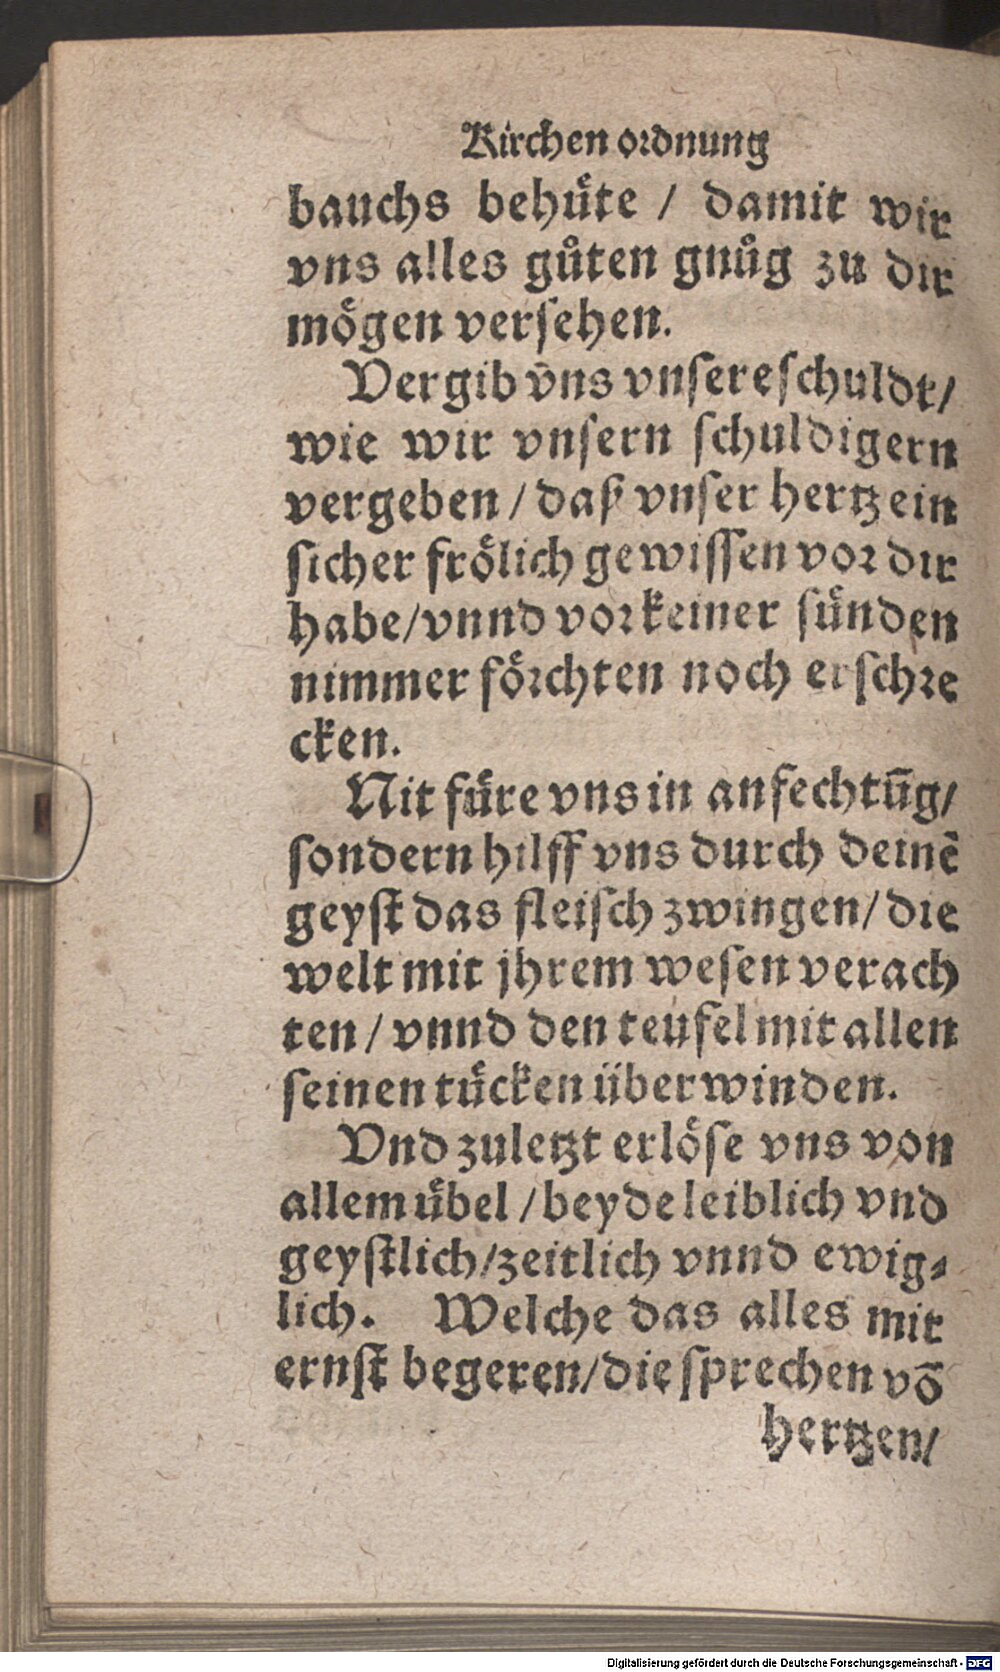 Kirchen ordnung
bauchs behuͤte / damit wir
vns alles guͦten gnuͦg zu dir
moͤgen verſehen.
Vergib vns vnſere ſchuldt/
wie wir vnſern ſchuldigern
vergeben / daß vnſer hertz ein
ſicher froͤlich gewiſſen vor dir
habe/vnnd vor keiner ſuͤnden
nimmer foͤrchten noch erſchre
cken.
Nit fuͤre vns in anfechtūg/
ſondern hilff vns durch deinē
geyſt das fleiſch zwingen/die
welt mit jhrem weſen verach
ten / vnnd den teufel mit allen
ſeinen tuͤcken überwinden.
Vnd zuletzt erloͤſe vns von
allem uͤbel / beyde leiblich vnd
geyſtlich/zeitlich vnnd ewig⸗
lich. Welche das alles mit
ernſt begeren/die ſprechen vō
hertzen/
Digitalisierung gefördert durch die Deutsche Forschungsgemeinschaft - DFG